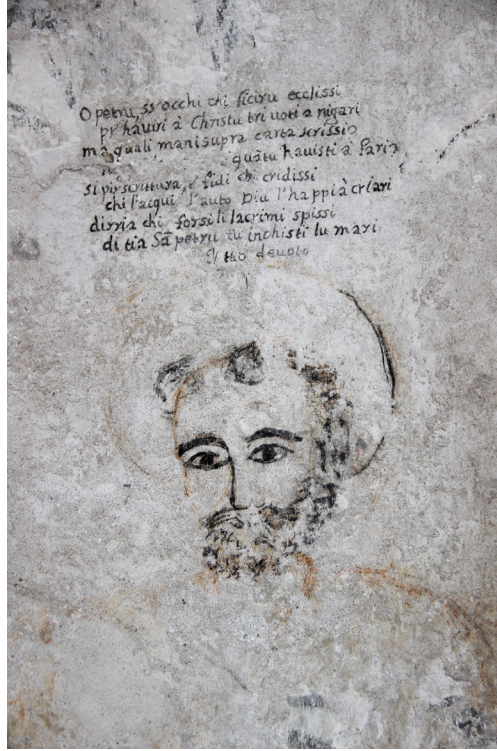 O petru, ss'occhi chi ficiru ecclissi
pr haviri à Christu tri voti a nigari
ma quali mani supra carta scrissi
quātu havisti à
si pir scrittura, e fidi chi cridissi
chi l'acqui l'auto Diu l'happi à criari
dirria chi forsi li lacrimi spissi
di tia Sā petru tu inchisti lu mari
Il tuo devoto